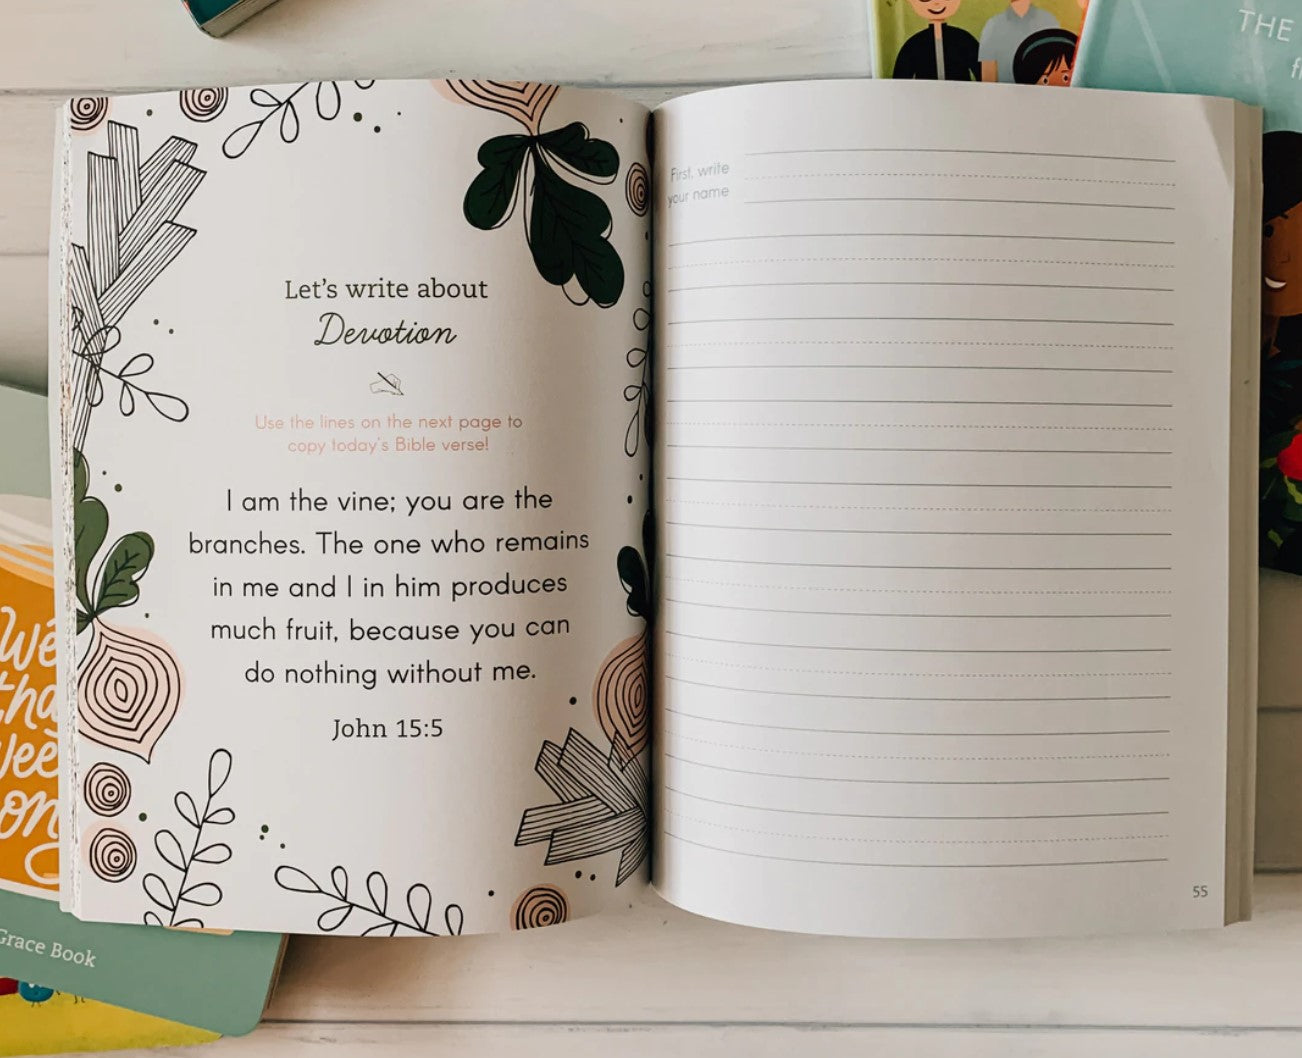 Let's write about
Devotion
Use the lines on the next page to
copy today's Bible verse!
I am the vine; you are the
branches. The one who remains
in me and I in him produces
much fruit, because you can
do nothing without me.
John 15:5
First, write
your name
55
THE
on
Grace Book